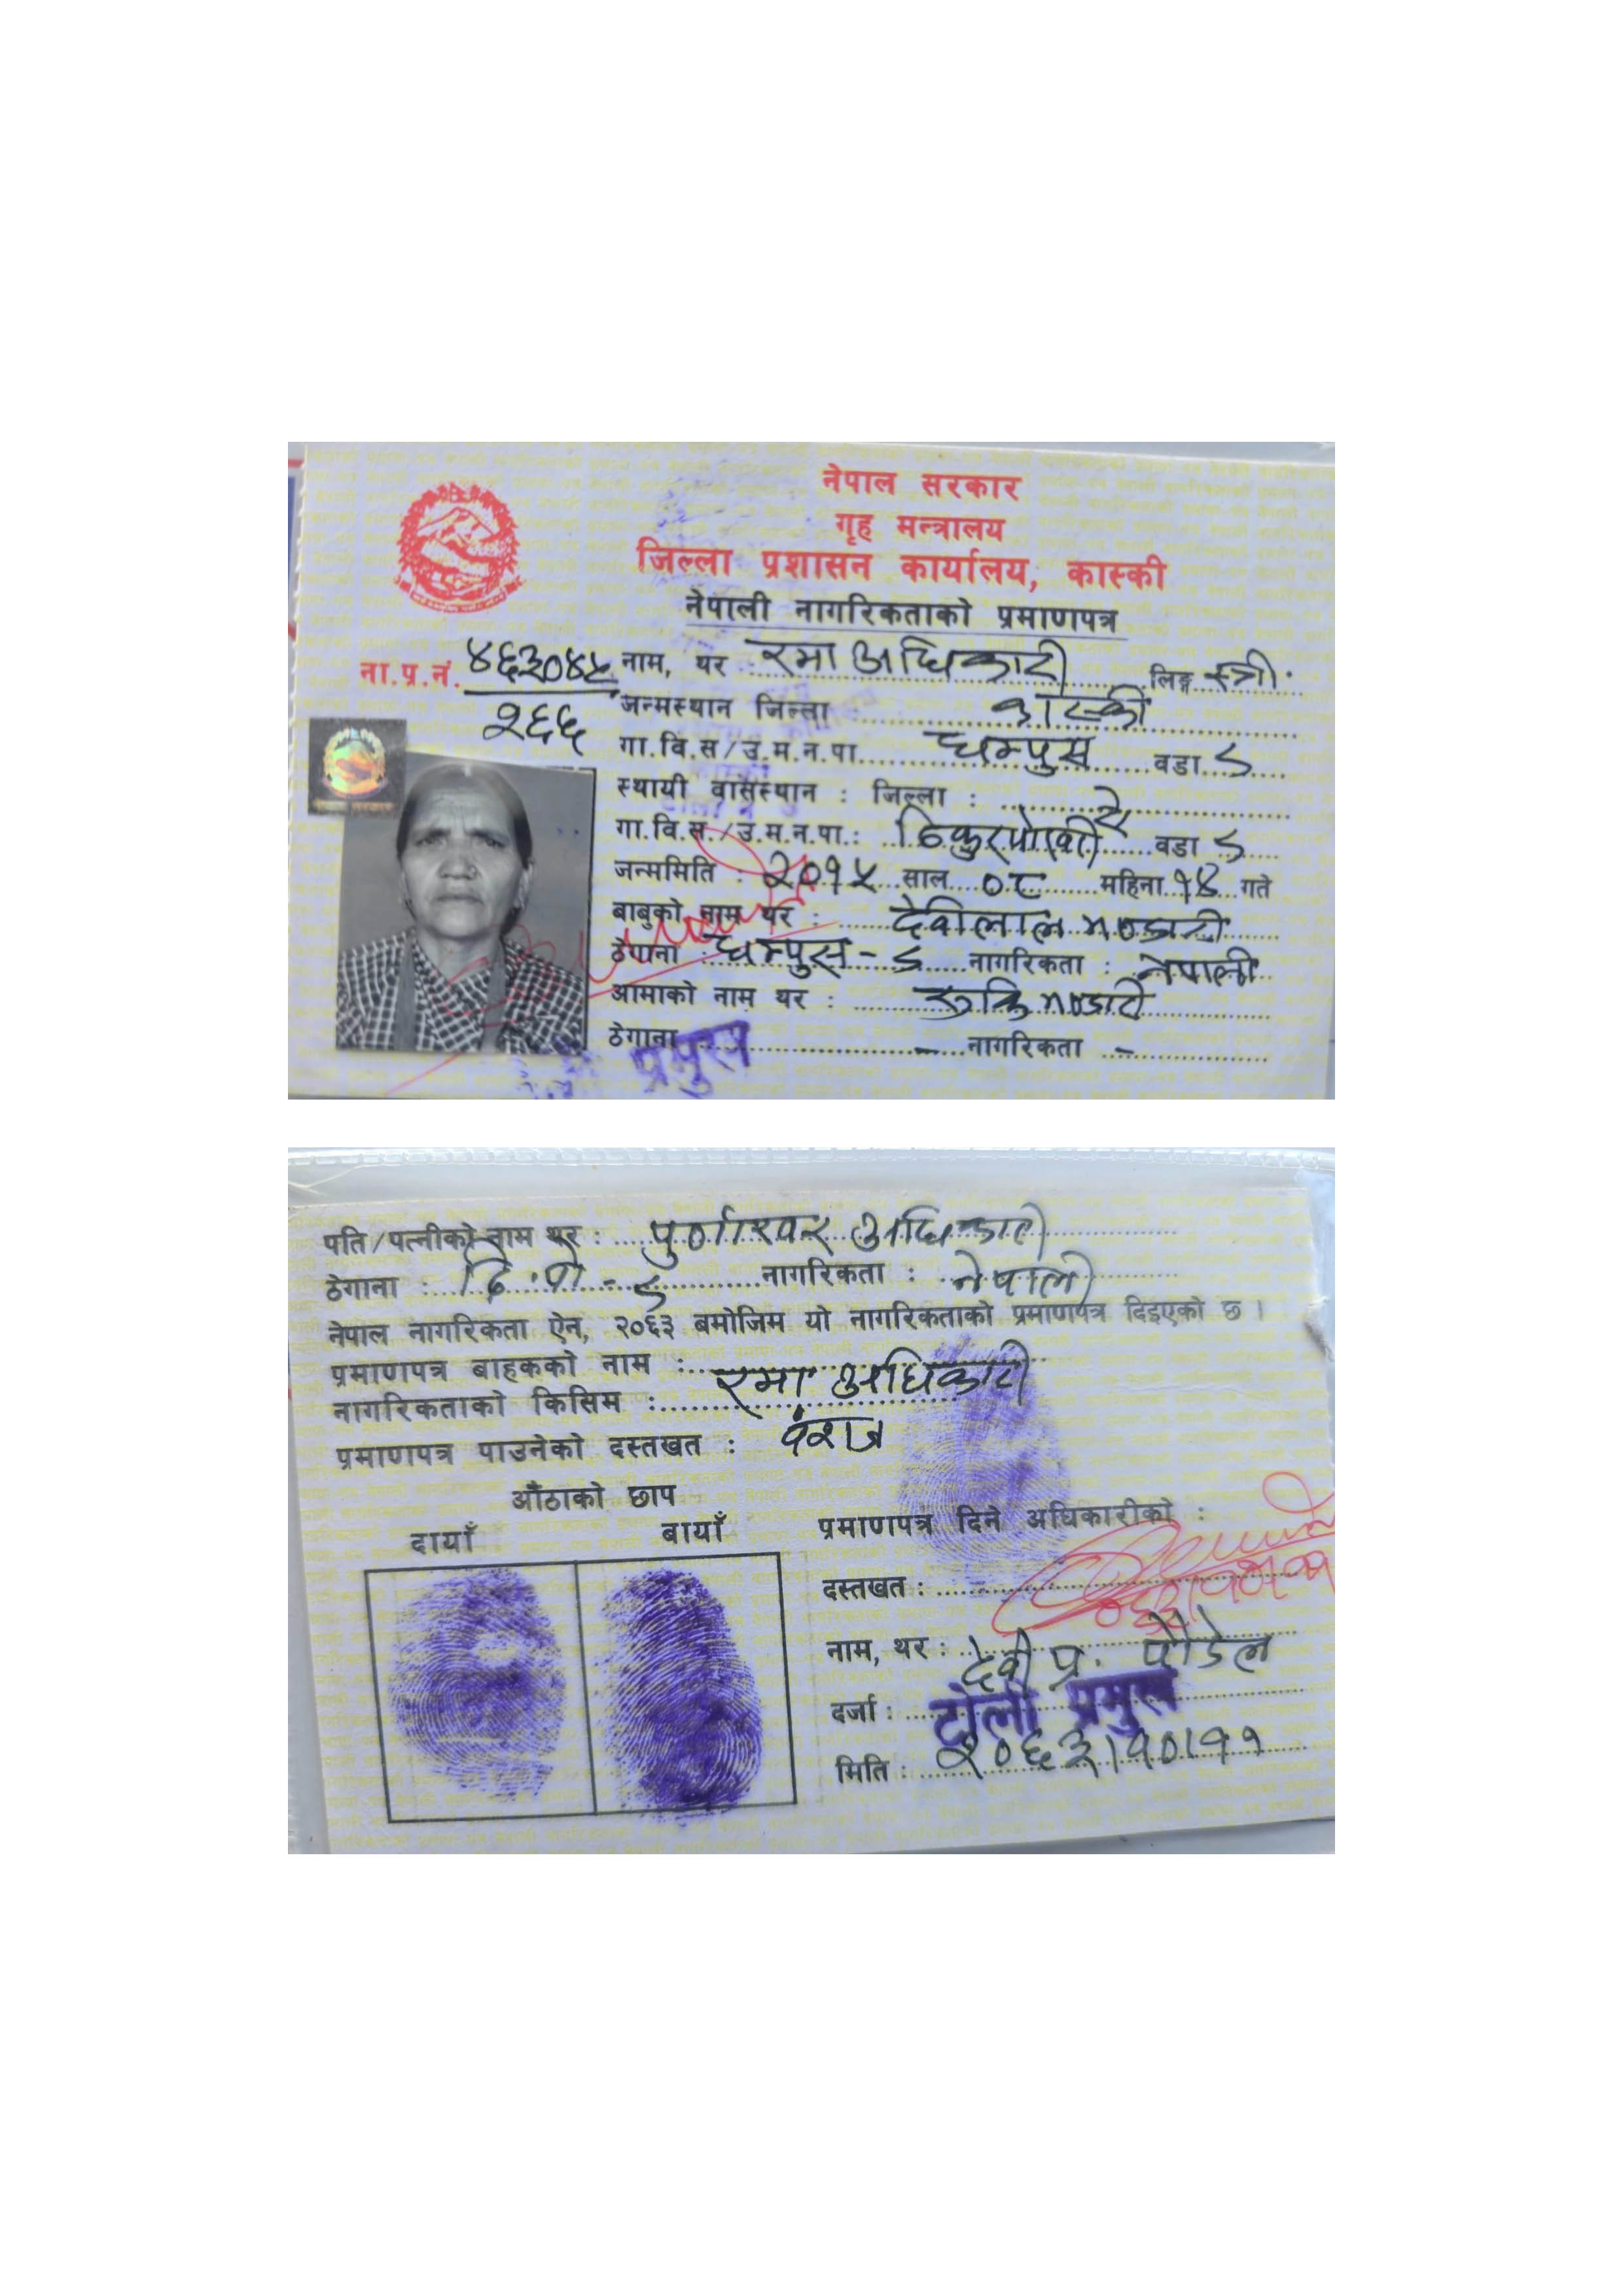 नेपाल सरकार
गृह मन्त्रालय
जिल्ला प्रशासन कार्यालय, कास्की
नेपाली नागरिकताको प्रमाणपत्र
ना.प्र.नं. ४६३०४५ नाम, थर : रमा अधिकारी लिङ्ग स्त्री.
२६६ जन्मस्थान जिल्ला कास्की
गा.वि.स/उ.म.न.पा. धम्पुस वडा ८
स्थायी वासस्थान : जिल्ला :
गा.वि.स./उ.म.न.पा.: ढिकुरपोखरी वडा ८
जन्ममिति : २०१५ साल ०८ महिना १४ गते
बाबुको नाम थर : देवीलाल भण्डारी
ठेगाना : धम्पुस - ८ नागरिकता : नेपाली
आमाको नाम थर : भण्डारी
ठेगाना - नागरिकता -
प्रमुख
पति/पत्नीको नाम थर : अधिकारी
ठेगाना : ढि.पो - ८ नागरिकता : नेपाली
नेपाल नागरिकता ऐन, २०६३ बमोजिम यो नागरिकताको प्रमाणपत्र दिइएको छ ।
प्रमाणपत्र बाहकको नाम : रमा अधिकारी
नागरिकताको किसिम : वंशज
प्रमाणपत्र पाउनेको दस्तखत :
औंठाको छाप
दायाँ बायाँ
प्रमाणपत्र दिने अधिकारीको :
दस्तखत :
नाम, थर : देवी प्र. पौडेल
दर्जा : टोली प्रमुख
मिति : २०६३।१०।११